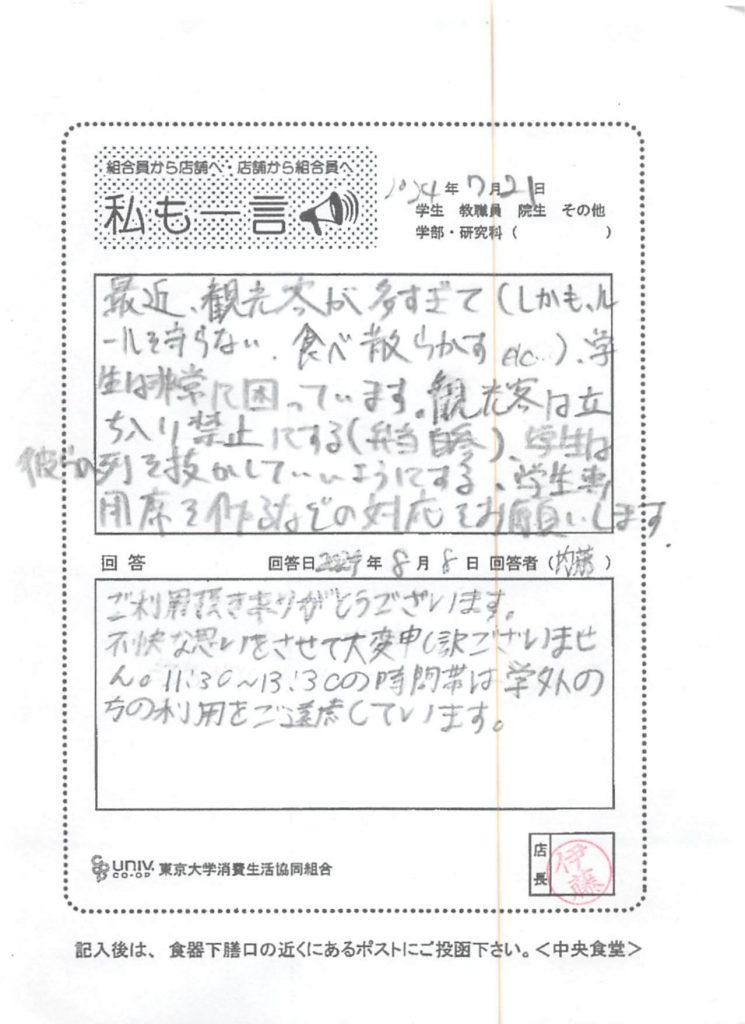 組合員から店舗へ・店舗から組合員へ
私も一言
2024年7月21日
学生 教職員 院生 その他
学部・研究科（ ）
最近、観光客が多すぎて（しかも、ル
ールを守らない、食べ散らかすetc…）、学
生は非常に困っています。観光客は立
ち入り禁止にする（弁当自参）、学生は
彼らの列を抜かしていいようにする、学生専
用席を作るなどの対応をお願いします.
回答 回答日2024年8月8日 回答者（内藤）
ご利用頂き有りがとうございます。
不快な思いをさせて大変申し訳ございませ
ん。11:30～13:30の時間帯は学外の
方の利用をご遠慮しています。
UNIV.
CO-OP
東京大学消費生活協同組合
店長
伊藤
記入後は、食器下膳口の近くにあるポストにご投函下さい。＜中央食堂＞